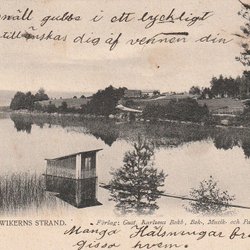 snäll gubbe i ett lyckligt
tillönskas dig af vännen din
WIKERNS STRAND.
Förlag: Gust. Karlsons Bokh, Bok-, Musik- och Pa
Många Hälsningar fr
gissa hvem.